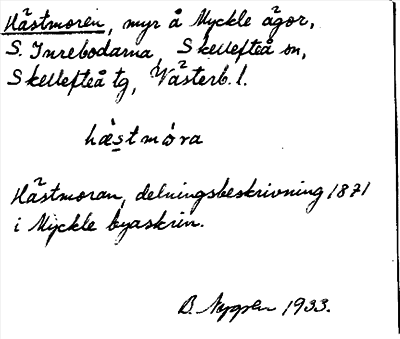 Hästmoren, myr å Myckle ägor,
S. Inrebodarna, Skellefteå sn,
Skellefteå tg, Västerb. l.
hæ̀stmòra
Hästmoran, delningsbeskrivning 1871
i Myckle byaskrin.
B. Nygren 1933.